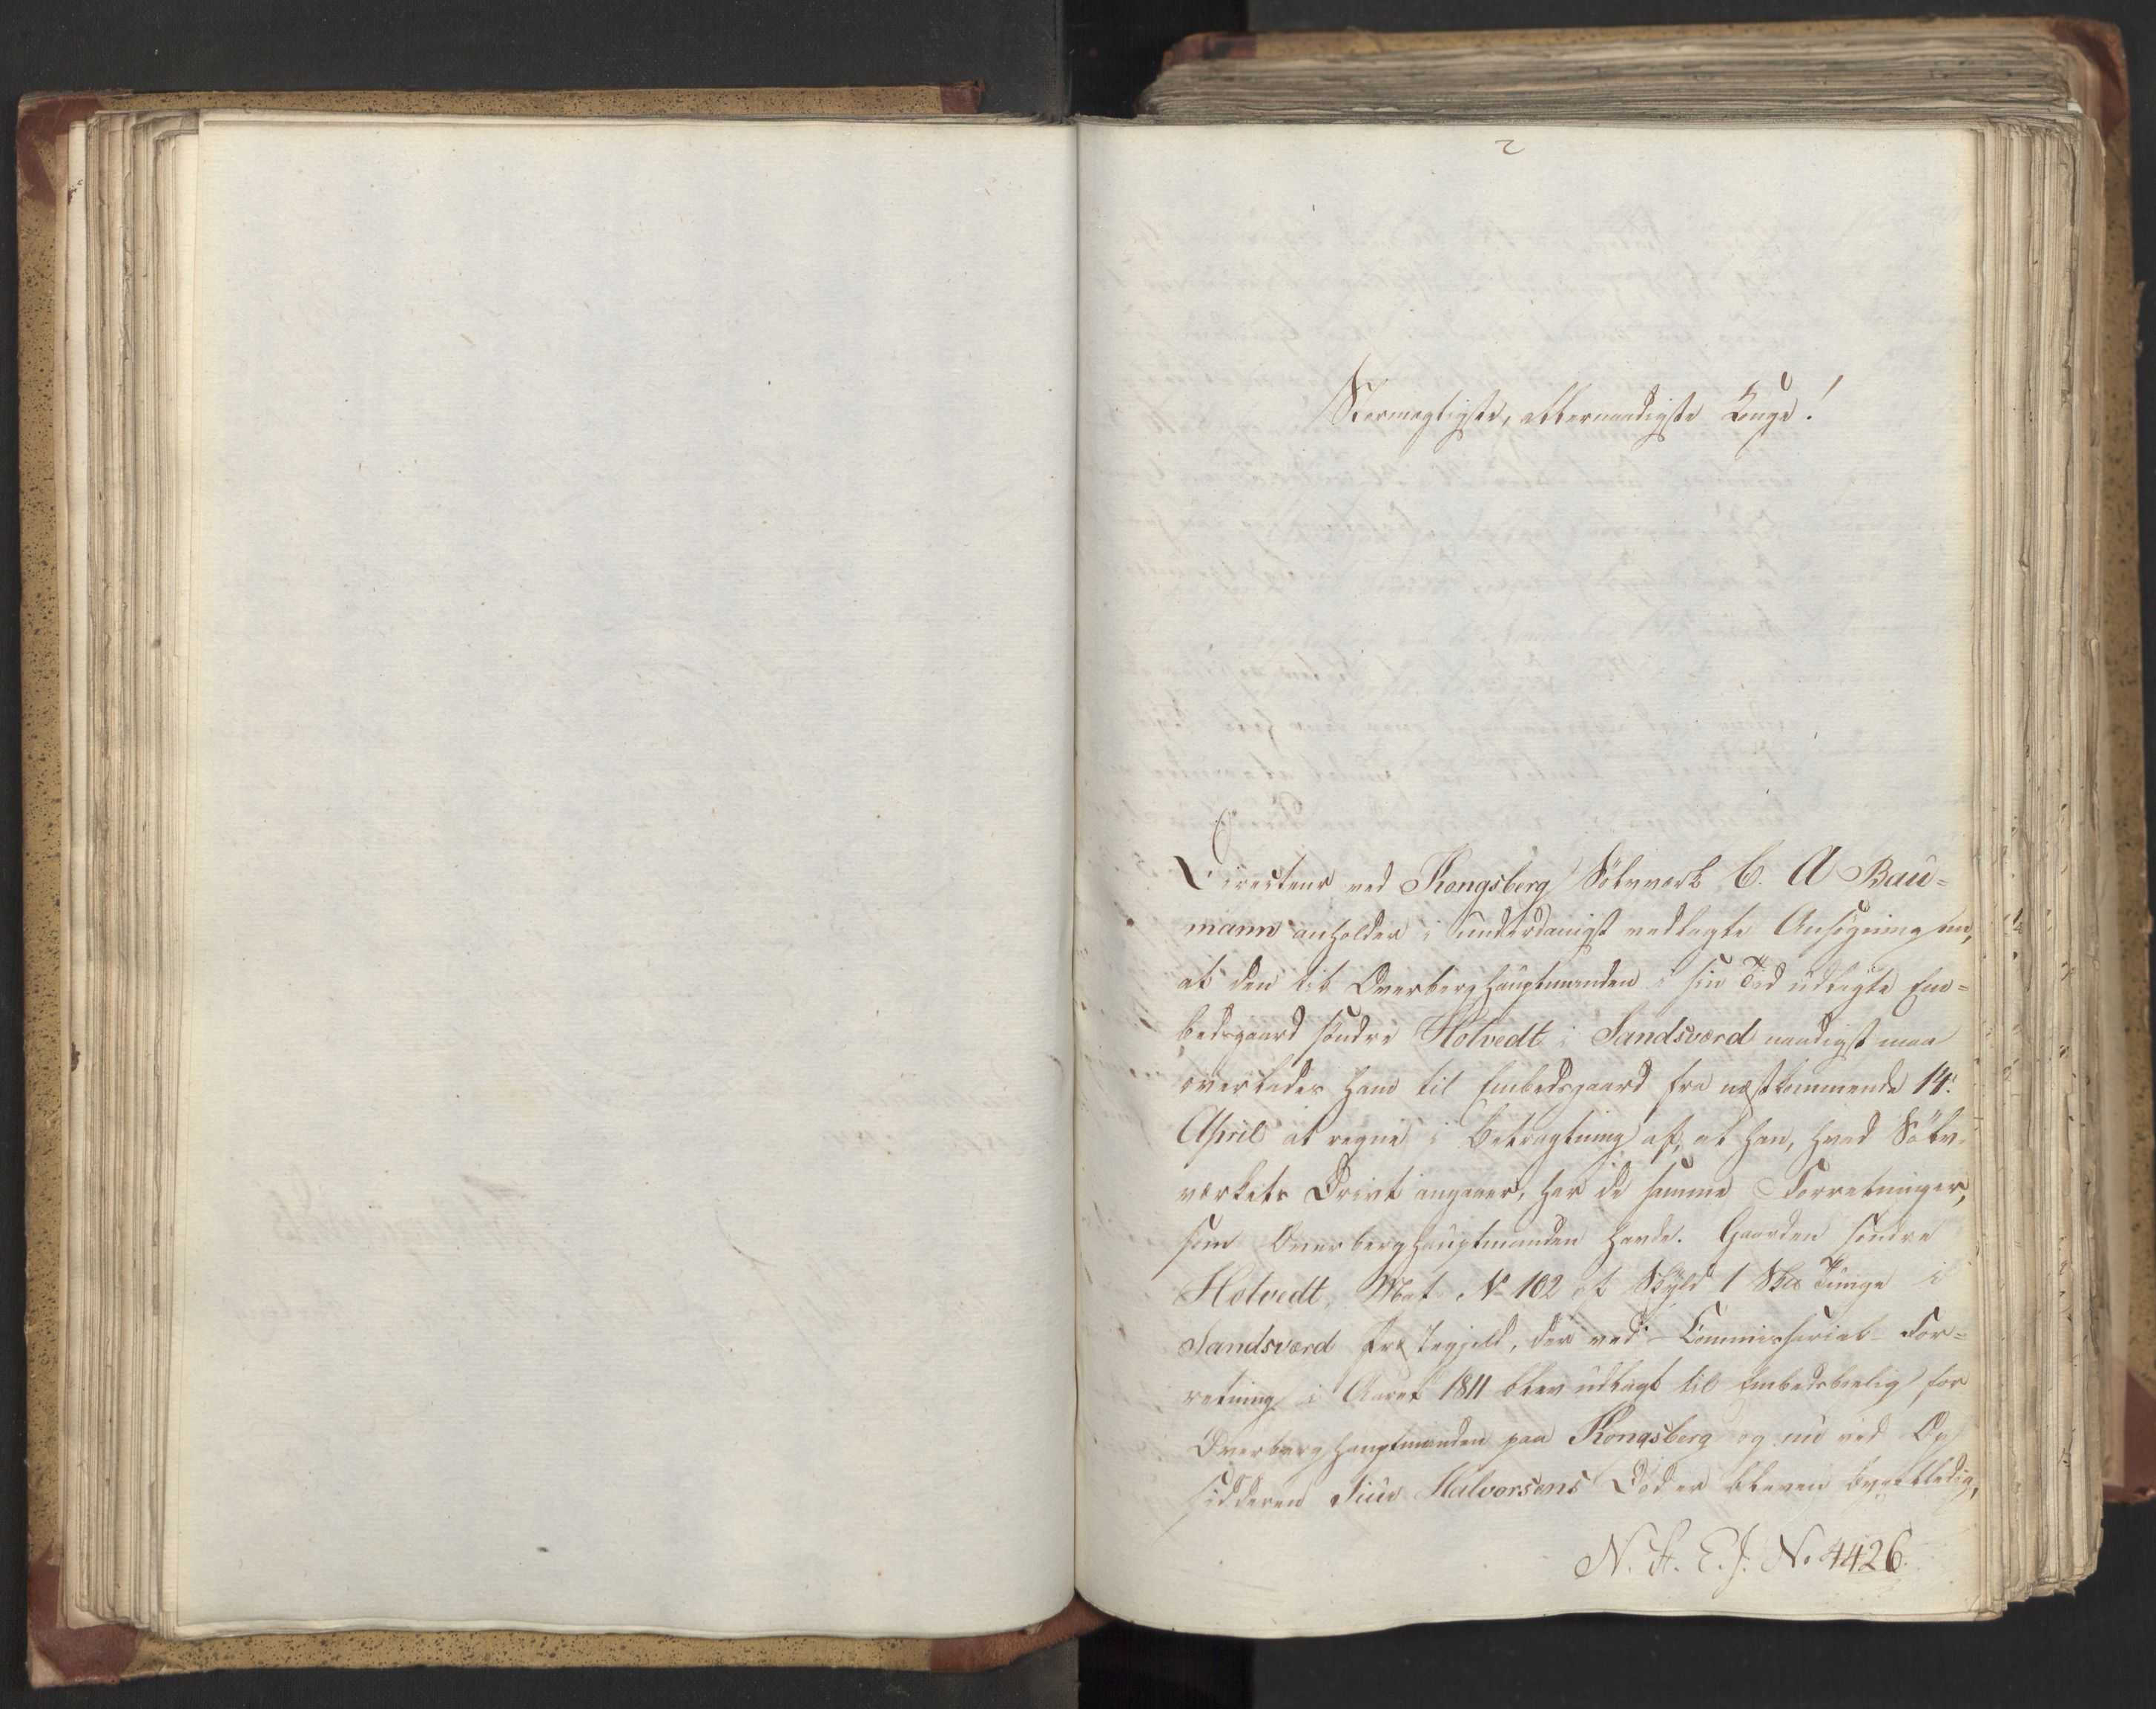 2
Stormægtigste, allernaadigste Konge!
Directeur ved Kongsberg Sölvværk C. A Bau=
mann anholder i underdanigst vedlagte Ansögning om,
at den til Overberghauptmanden i sin Tid udlagte Em=
bedsgaard söndre Holvedt i Sandsværd naadigst maa
overlades ham til Embedsgaard fra næstkommende 14.
April at regne i Betragtning af, at han, hvad Sölv-
værkets Drivt angaaer, har de samme Forretninger,
som Overberghauptmanden havde. Gaarden söndre
Holvedt, Mat. No 102 af Skyld 1 Skd Tunge i
Sandsværd Præstegjeld, der ved Commissarial-For=
retning i Aaret 1811 blev udlagt til Embedsbolig for
Overberghauptmanden paa Kongsberg og nu ved Op
sidderen Halvorsens Död er bleven
N. St. E. J. No 4426.